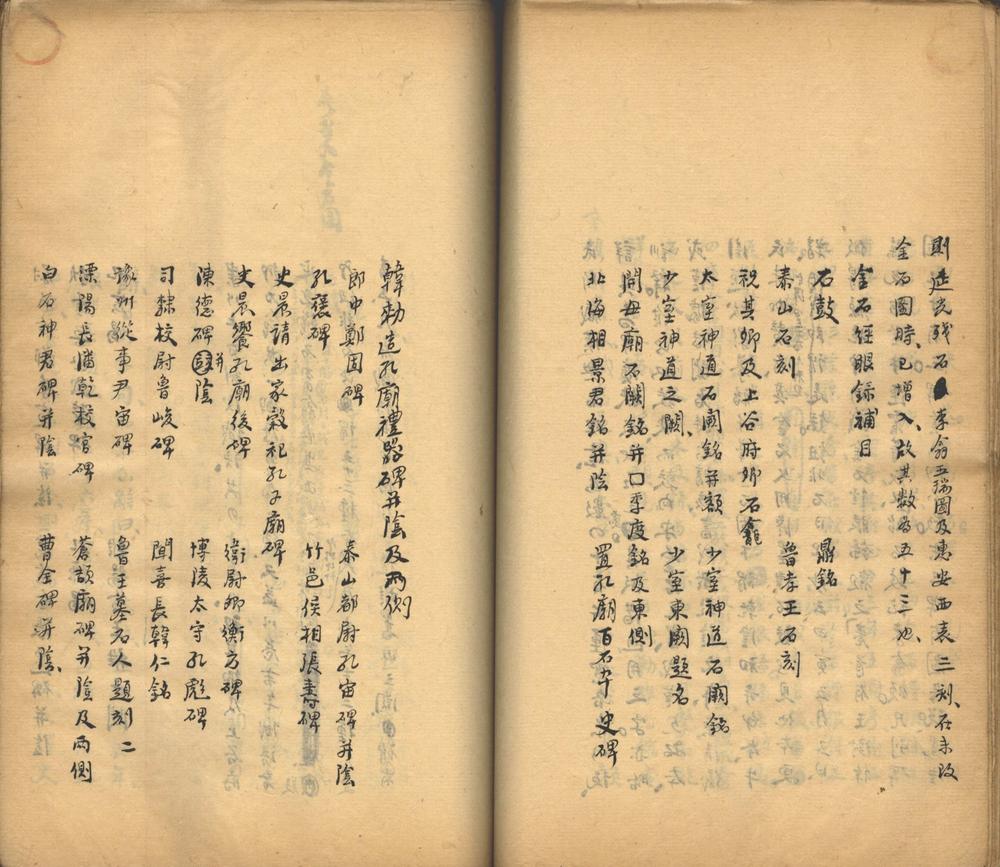 則延光殘石李翕五瑞圖及惠安西表二刻、在未改
金石圖時、已增入、故其數為五十三也、
金石經眼錄補目
石鼓 鼎銘
泰山石刻 魯孝王石刻
祝其卿及上谷府卿石龕
太室神道石闕銘并額 少室神道石闕銘
少室神道之闕、 少室東闕題名
開母廟石闕銘并口季度銘及東側
北海相景君銘并陰 置孔廟百石卒史碑
韓勑造孔廟禮器碑并陰及兩側
郎中鄭固碑 泰山都尉孔宙碑并陰
孔襃碑 竹邑侯相張壽碑
史晨請出家穀祀孔子廟碑
史晨饗孔廟後碑 衛尉卿衡方碑
陳德碑并陰 博陵太守孔彪碑
司隸校尉魯峻碑 聞喜長韓仁銘
豫州從事尹宙碑 魯王墓石人題刻二
溧陽長潘乾校官碑 蒼頡廟碑并陰及兩側
白石神君碑并陰 曹全碑并陰、